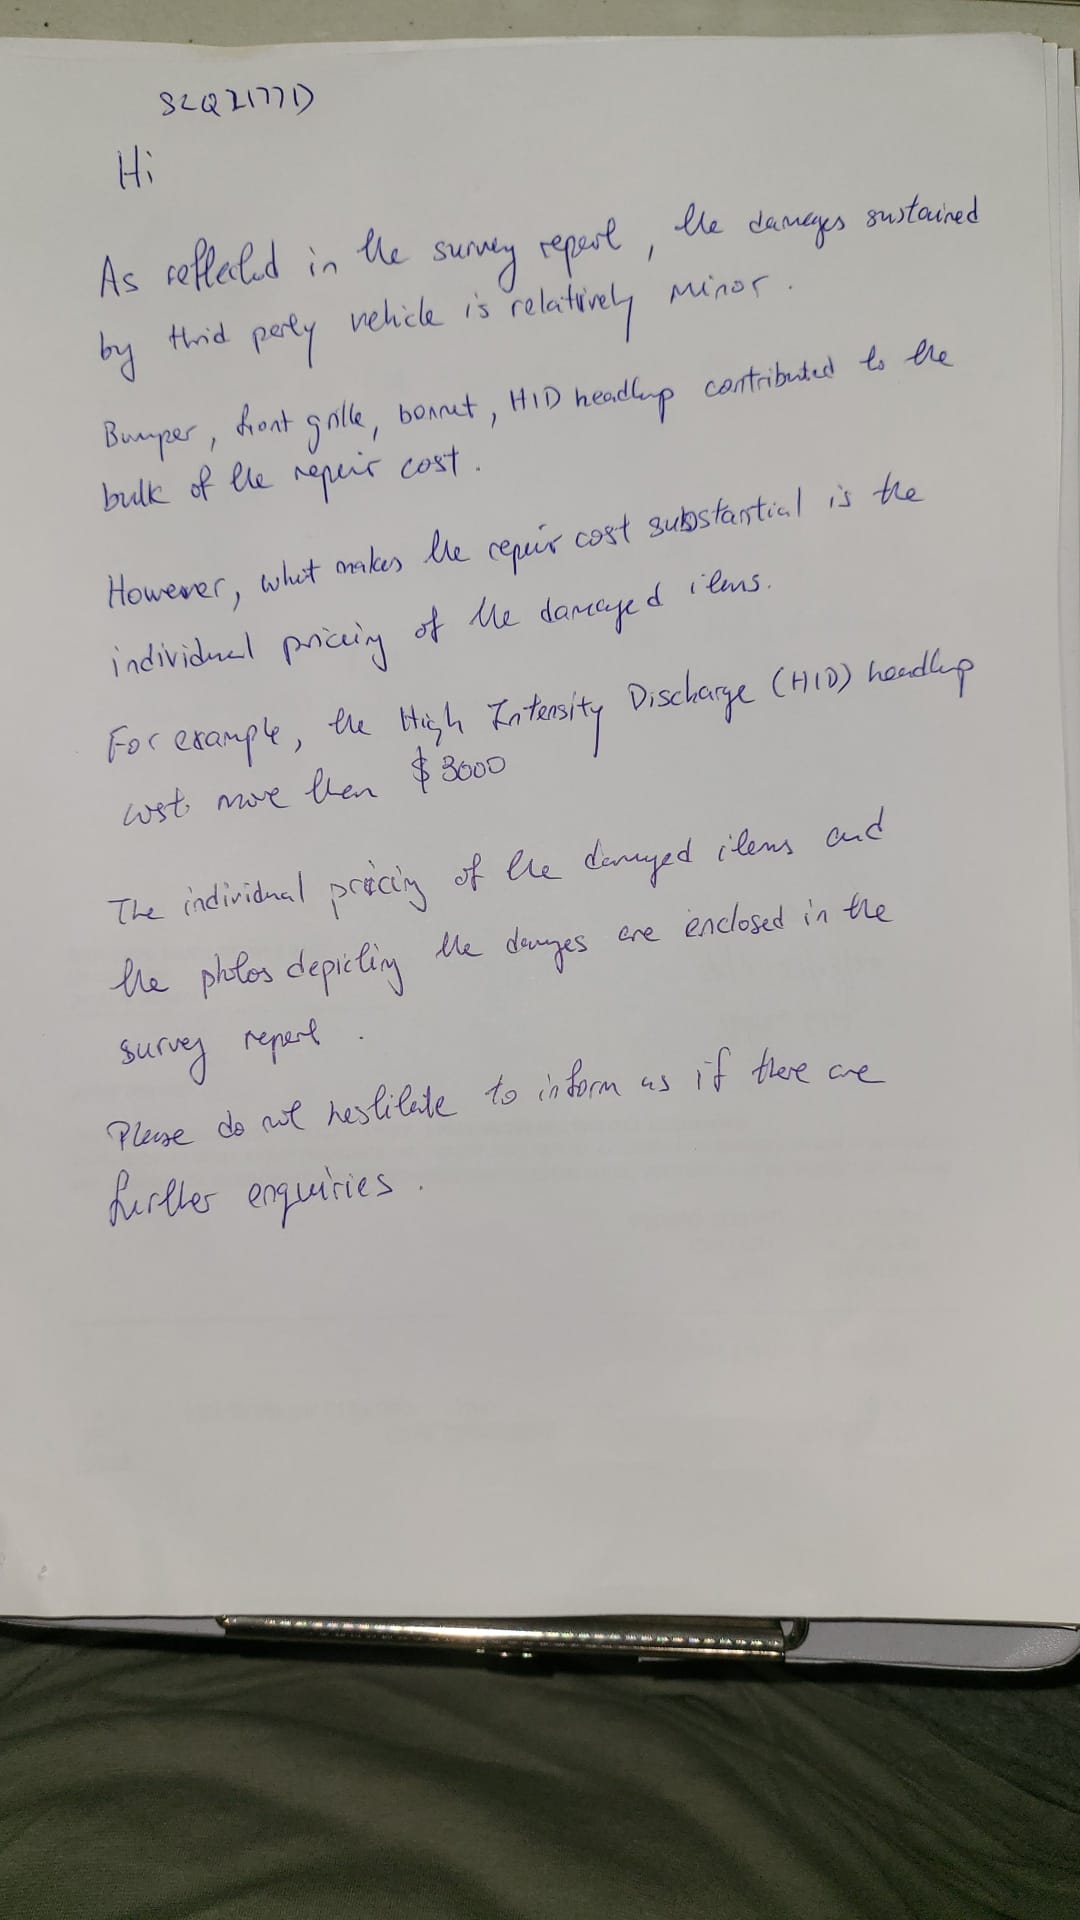 SLQ2177D
Hi
As reflected in the survey report, the damages sustained
by thrid party vehicle is relativively minor.
Bumper, front grille, bonnet, HID headlamp contributed to the
bulk of the repair cost.
However, what makes the repair cost substantial is the
individual pricing of the damaged items.
For example, the High Intensity Discharge (HID) headlamp
cost more then $3000
The individual pricing of the damaged items and
the photos depicting the damages are enclosed in the
survey report.
Please do not hestitate to inform us if there are
further enquiries.